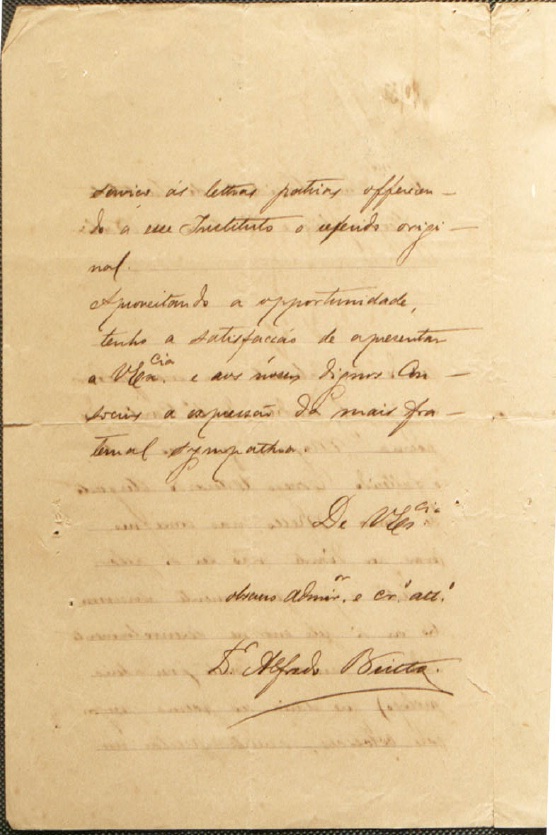 serviço ás lettras patrias offerecen-
do á esse Instituto o referido origi-
nal.
Aproveitando a opportunidade,
tenho a satisfacção de apresentar
a V.Ex.cia e aos nossos dignos con-
socios a expressão da mais fra-
ternal sympathia
De V.Ex.cia
obscuro admor. e cro. atto.
Dr. Alfredo Britto.